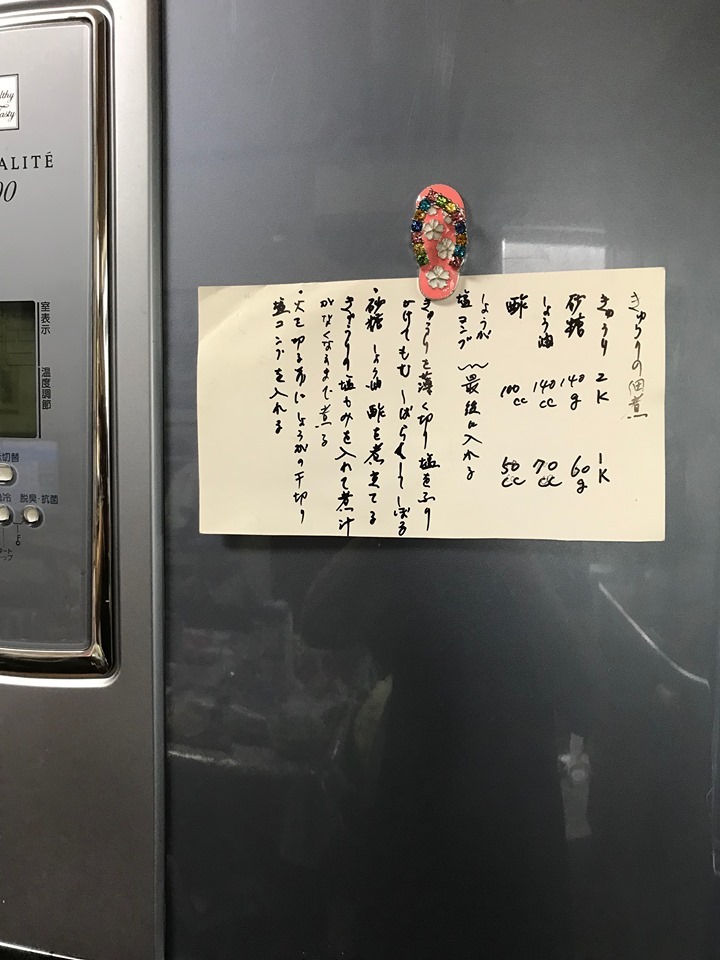 きゅうりの佃煮
きゅうり 2K 1K
砂糖 140g 60g
しょう油 140cc 70cc
酢 100cc 50cc
しょうが
塩コンブ 〉最後に入れる
きゅうりを薄く切り塩をふり
かけてもむ しばらくしてしぼる
・砂糖 しょう油 酢を煮立てる
きゅうりの塩もみを入れて煮汁
がなくなるまで煮る
・火を切る前にしょうがの千切り
塩コンブを入れる
ALITÉ
室表示
温度調節
切替
脱臭・抗菌